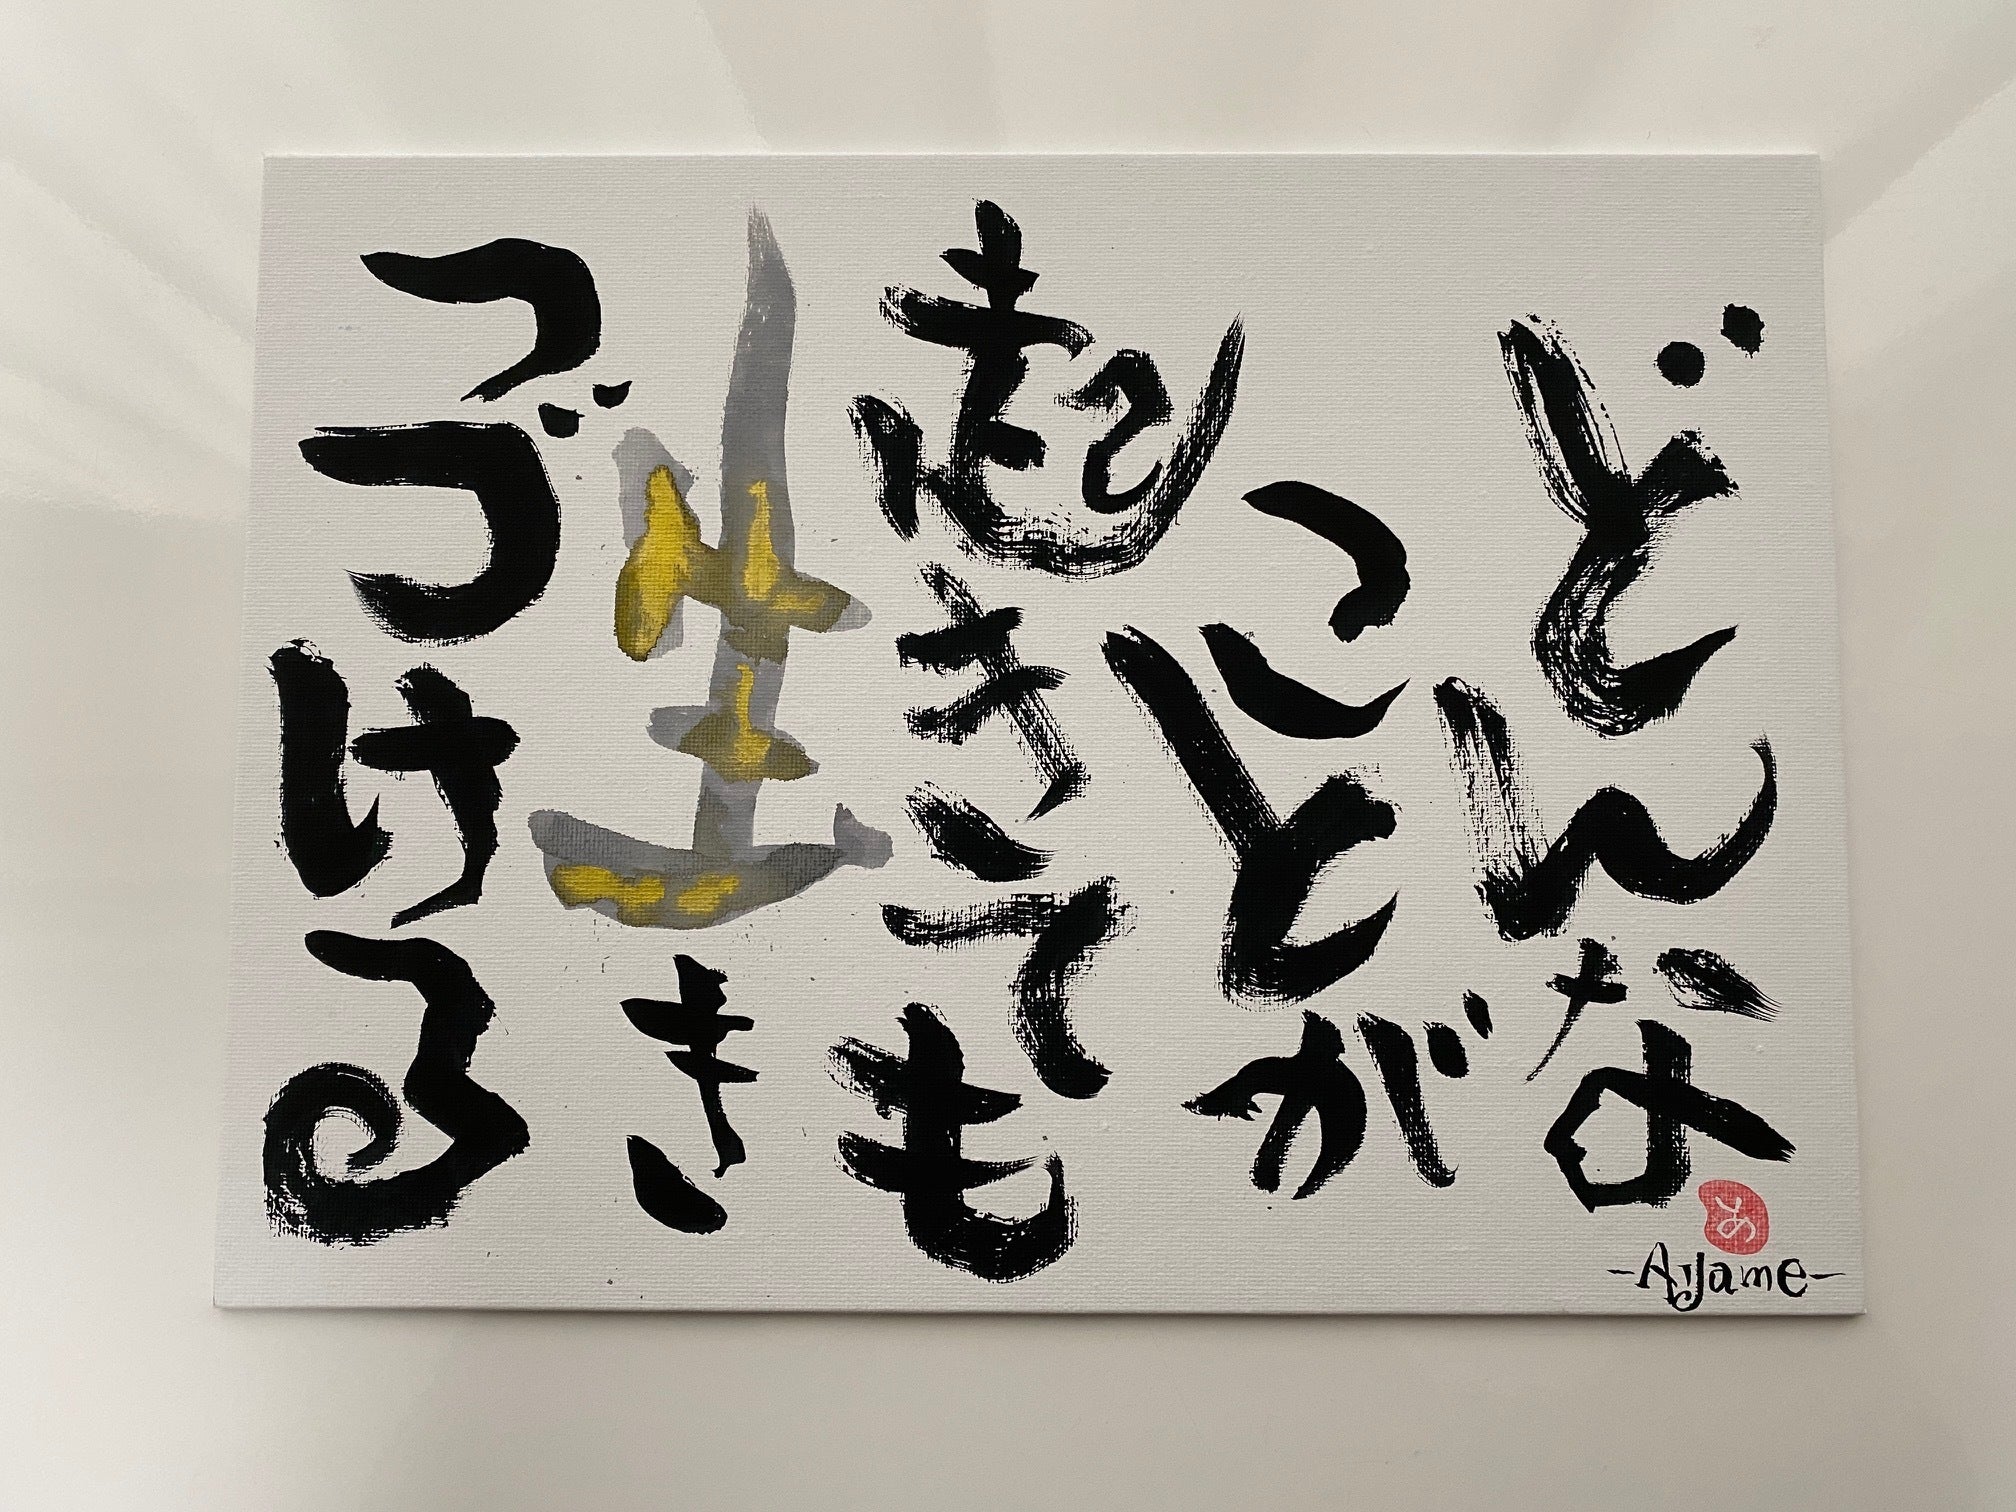 どんな
ことが
起きても
生き
つづける
あ
-Ayame-